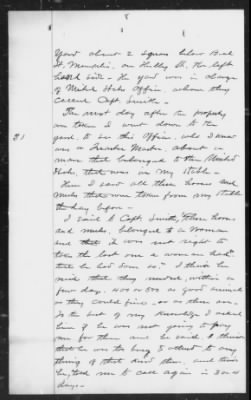 8
Yard about 2 squares below Beal
St. Memphis, on Hulling St. the left
hand side - The yard was in charge
of United States Officer whom they
called Capt. Smith. -
The next day after the property
was taken I went down to the
yard to see this Officer, who I
was a Quarter Master about a
mare that belonged to the United
States, that was in my Stable -
Then I saw all these horses and
mules that were taken from my stable
the day before -
21
I said to Capt. Smith, these horses
and mules, belonged to a Woman
and that it was not right to
take the last one a woman had
that he had done so." I think he
said that they needed, within a
few days, 400 or 500 as good animals
as they could find - or as these are.
To the best of my knowledge I asked
him if he was not going to pay
me for them and he said I think
that he was too busy to attend to any
thing of that kind then, and
he told me to call again in 3 or 4
days -